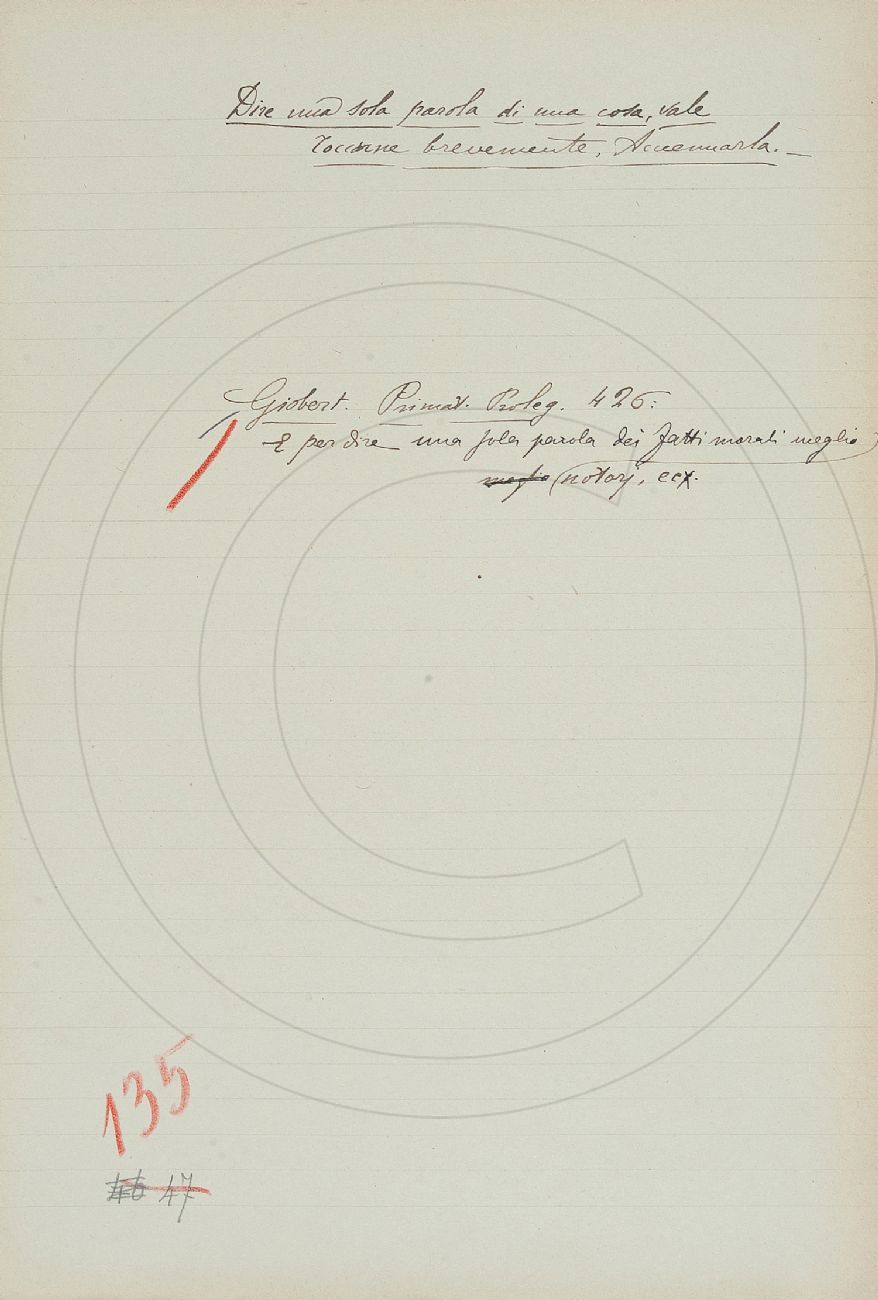 Dire una sola parola di una cosa, vale
Toccarne brevemente, Accennarla. –
Giobert. Primat. Proleg. 426:
E per dire una sola parola dei fatti morali meglio
meglio notorj, ecc.
135
46 47